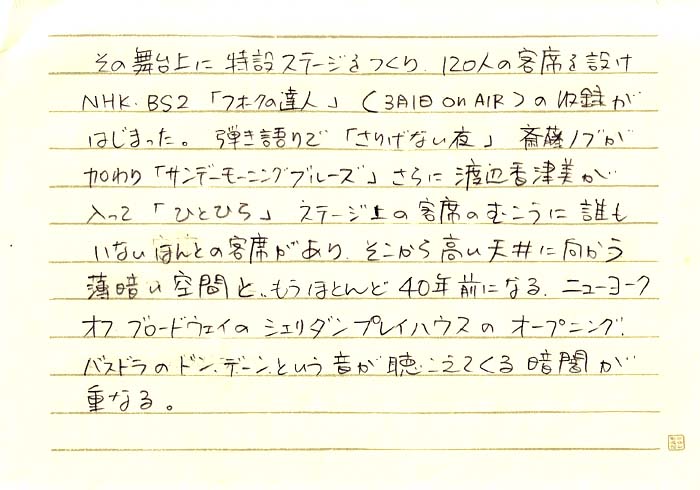 その舞台上に 特設ステージをつくり、120人の客席を設け
NHK・BS2 「フォークの達人」 (3月1日 on AIR) の収録が
はじまった。 弾き語りで 「さりげない夜」 斎藤ノブが
加わり 「サンデーモーニングブルーズ」 さらに 渡辺香津美が
入って 「ひとひら」 ステージ上の客席のむこうに 誰も
いない ほんとの客席があり、そこから 高い天井に向かう
薄暗い 空間と、もうほとんど 40年前になる、ニューヨーク
オフ ブロードウェイの シェリダンプレイハウスの オープニング、
バスドラの ドン、デーン、という 音が 聴こえてくる 暗闇が
重なる。